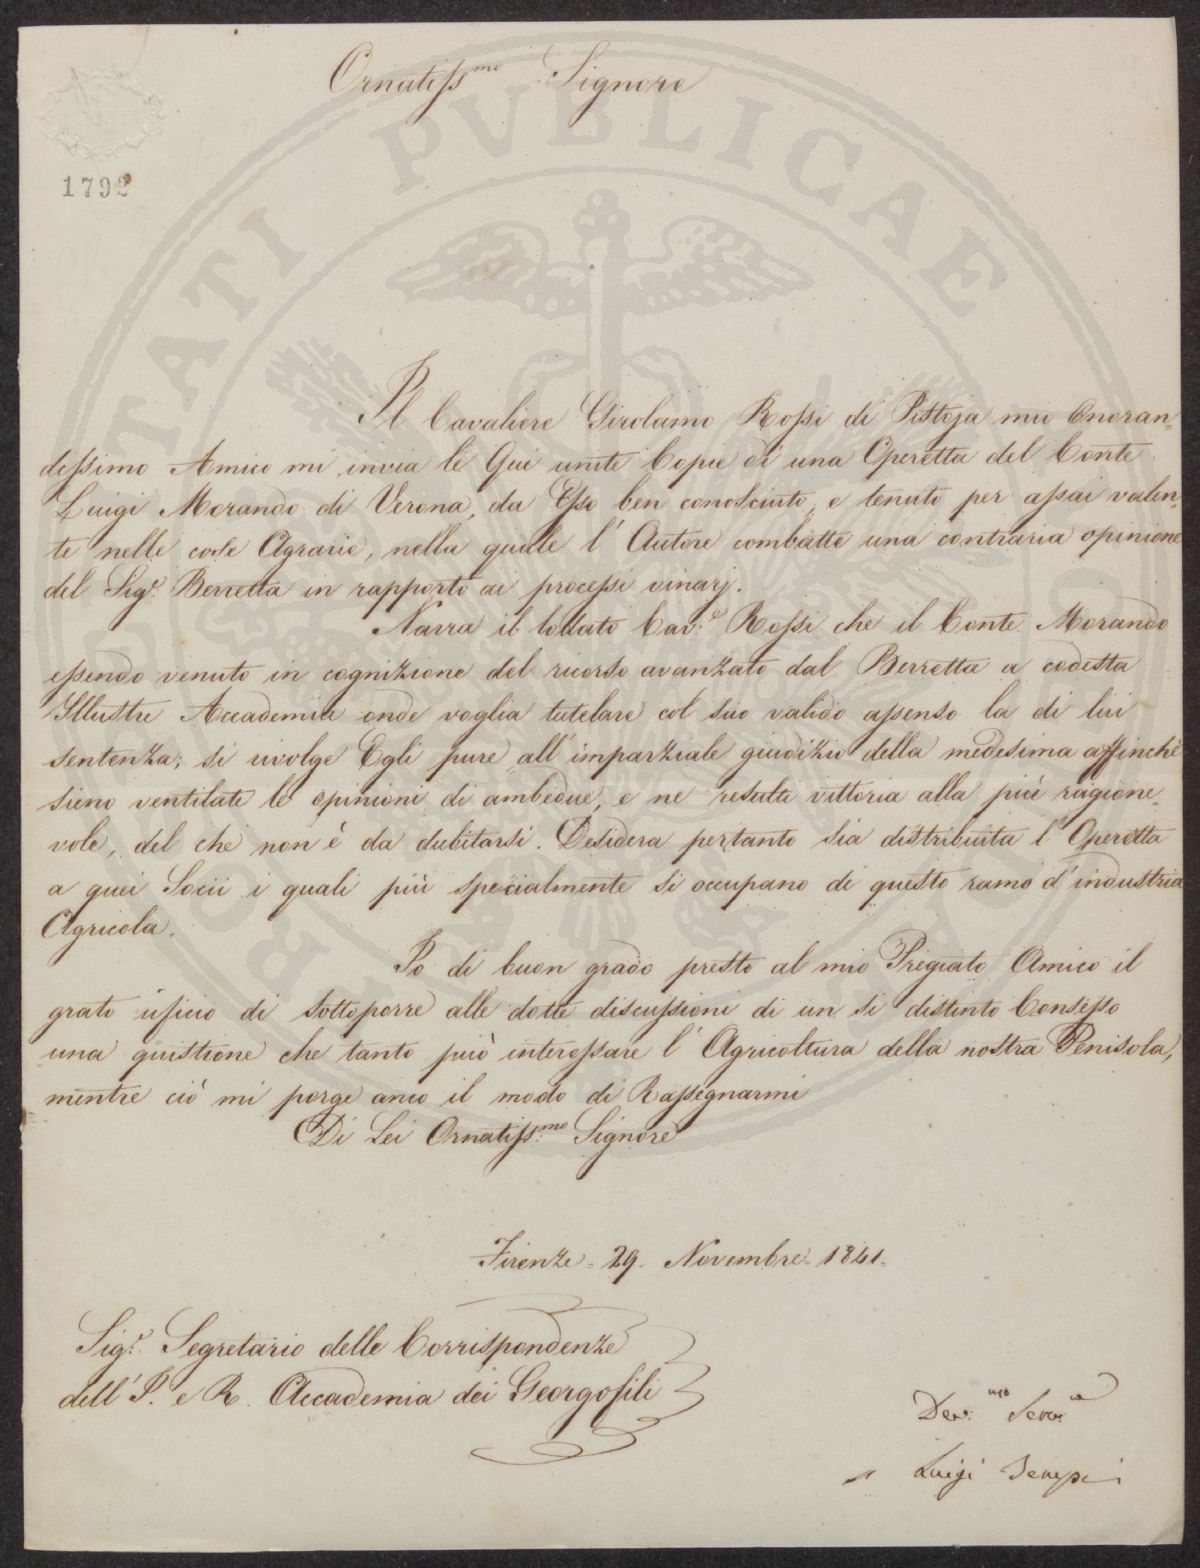 Ornatiss.mo Signore
PVBLICAE
1792
Il Cavaliere Girolamo Rossi di Pistoja mio Onoran=
dissimo Amico mi invia le Qui unite Copie di una Operetta del Conte
Luigi Morando di Verona, da Esso ben conosciuto, e tenuto per assai valen=
te nelle cose Agrarie, nella quale l'Autore combatte una contraria opinione
del Sig.r Berretta in rapporto ai processi vinarj.
Narra il lodato Cav.e Rossi che il Conte Morando
essendo venuto in cognizione del ricorso avanzato dal Berretta a codesta
Illustre Accademia onde voglia tutelare col suo valido assenso la di lui
sentenza; si rivolge Egli pure all'imparziale giudizio della medesima affinchè
sieno ventilate le opinioni di ambedue, e ne resulti vittoria alla più ragione=
vole, del che non è da dubitarsi. Desidera pertanto sia distribuita l'Operetta
a quei Socii i quali più specialmente si occupano di questo ramo d'industria
Agricola.
Io di buon grado presto al mio Pregiato Amico il
grato uficio di sottoporre alle dotte discussioni di un sì distinto Consesso
una quistione che tanto può interessare l'Agricoltura della nostra Penisola,
mentre ciò mi porge anco il modo di Rassegnarmi
Di Lei Ornatiss.mo Signore
Firenze = 29. Novembre = 1841 =
Sig.r Segretario delle Corrispondenze
dell'I. e R. Accademia dei Georgofili
Dev.mo Serv.re
Luigi